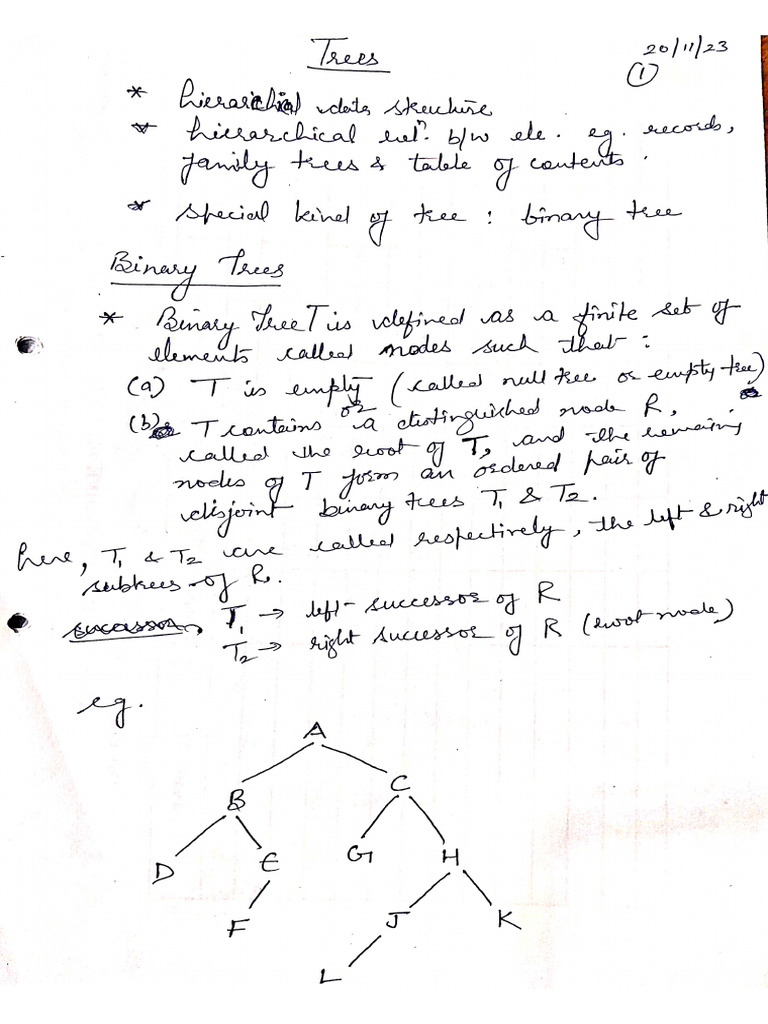 Trees
20/11/23
①
* hierarichial data structure
* hierarchical relⁿ. b/w ele. eg. records,
family trees & table of contents.
* special kind of tree : binary tree
Binary Trees
* Binary Tree T is defined as a finite set of
elements called nodes such that :
(a) T is empty (called null tree or empty tree)
or
(b) T contains a distinguished node R,
called the root of T, and the remaining
nodes of T form an ordered pair of
disjoint binary trees T₁ & T₂.
here, T₁ & T₂ are called respectively, the left & right
subtrees of R.
T₁ → left-successor of R
T₂ → right successor of R (root node)
eg.
A
B C
D E G H
F J K
L